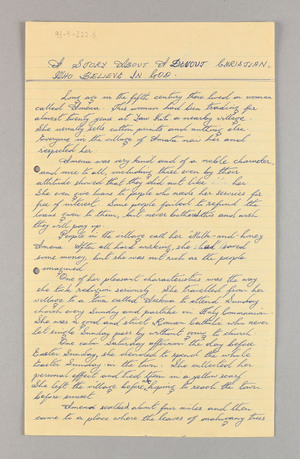 A STORY ABOUT A DEVOUT CHRISTIAN,
WHO BELIEVE IN GOD.
Long ago in the fifth century there lived a woman
called Amena. This woman had been trading for
almost twenty years at Law but a nearby village.
She usually sells cotton prints and nothing else
Everyone in the village of Amata near her and
respected her.
Amena was very kind and of a noble character
and nice to all, including those even by their
attitude showed that they did not like her.
She even gave loans to people who needs her services for
free of interest. Some people failed to refund the
loans even to them, but never bothered and wish
they will pay up.
People in the village call her Milk-and-honey
Amena. After all hard working, she had saved
some money, but she was not rich as the people
imagined.
One of her pleasant characteristics was the way
she took religion seriously. She travelled from her
village to a town called to attend Sunday
church every Sunday and partakes in Holy Communion.
She was a good and strict Roman Catholic who never
let single Sunday pass by without going to church.
One calm Saturday afternoon the day before
Easter Sunday, she decided to spend the whole
Easter Sunday in the town. She collected her
personal effect and tied them in a yellow scarf.
She left the village before hoping to reach the town
before sunset.
Amena walked about four miles and then
came to a place where the leaves of mahogany trees